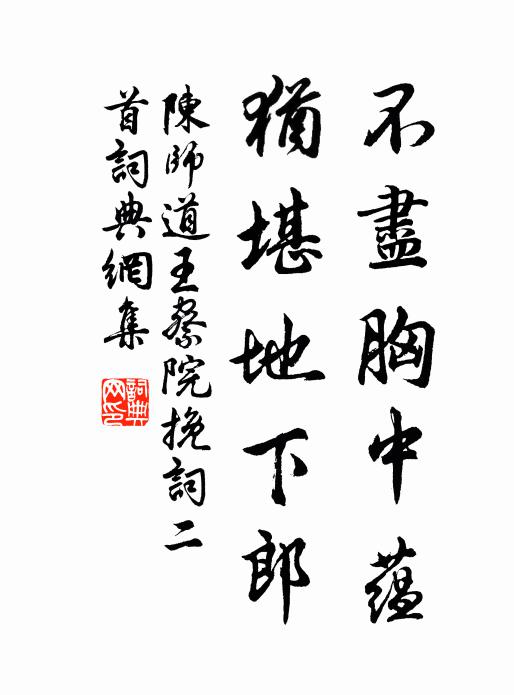 不盡胸中蘊
猶堪地下郎
陳師道王察院挽詞二
首詞典網集
詞典
網印